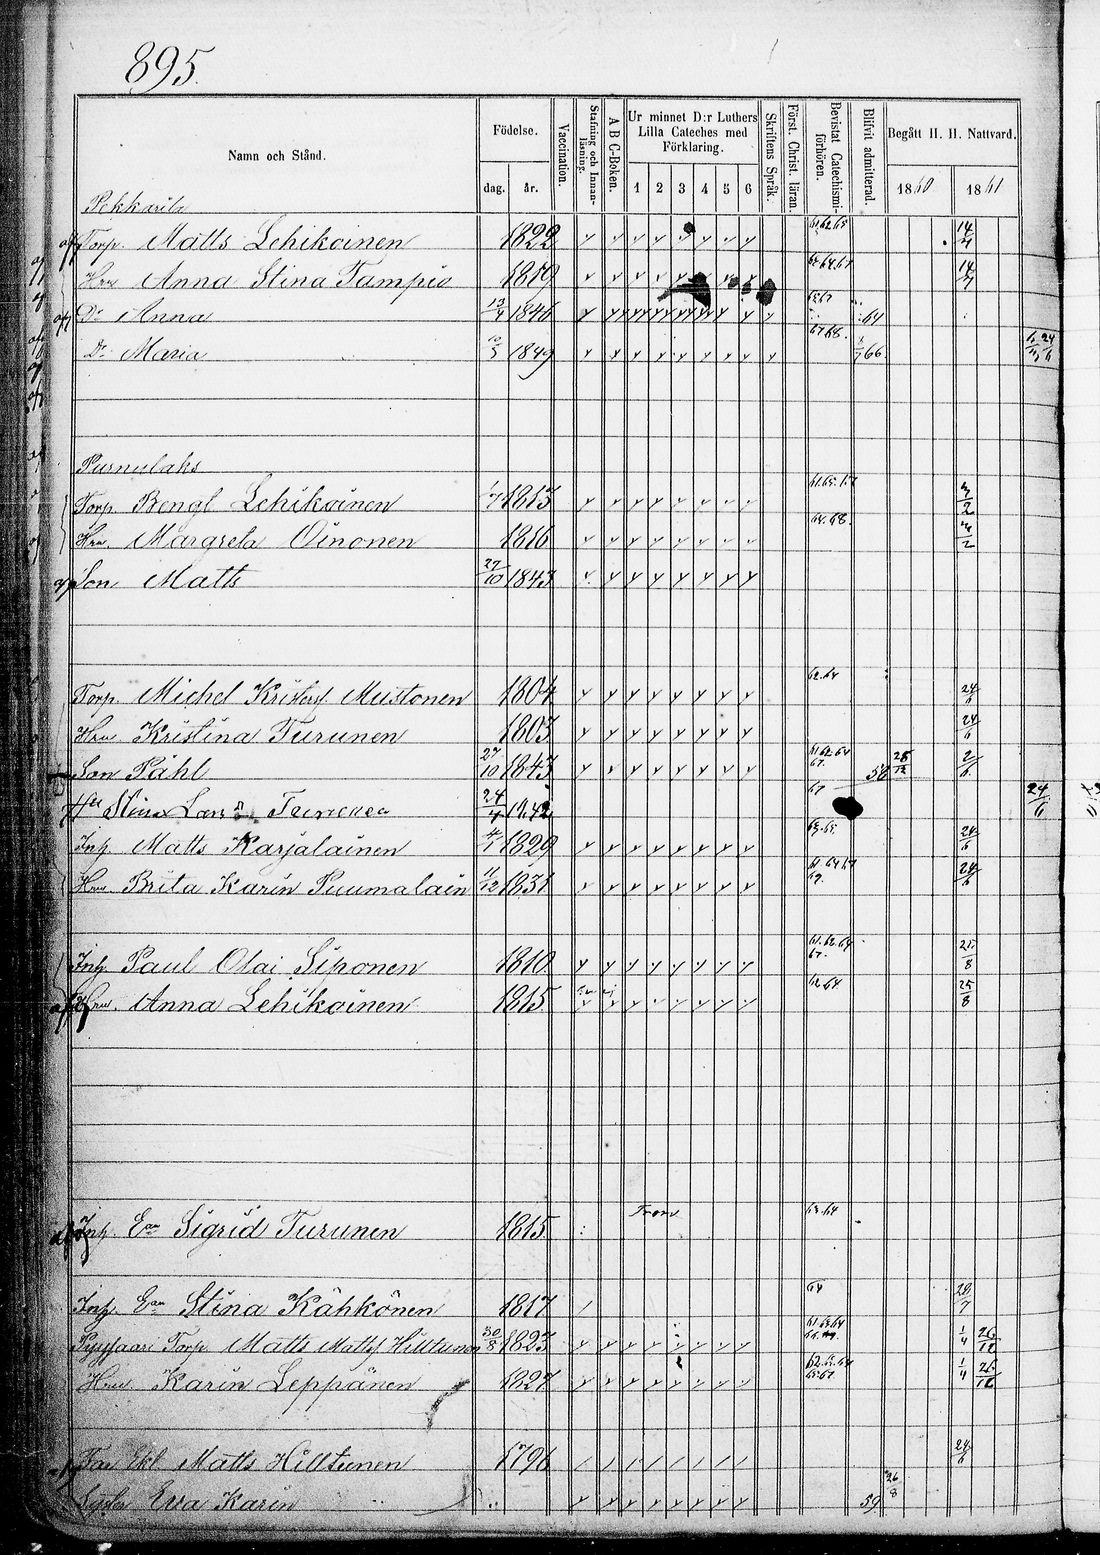 895.
Namn och Stånd.
Födelse.
dag.
år.
Vaccination.
Stafning och Innan-läsning.
A B C-Boken.
Ur minnet D:r Luthers
Lilla Cateches med
Förklaring.
1 2 3 4 5 6
Skriftens Språk.
Först. Christ. läran.
Bevistat Catechismi-förhören.
Blifvit admitterad.
Begått H. H. Nattvard.
1860 1861
Torp. Matts Lehikoinen 1822 61.62.65 14/7
Hru Anna Stina Tampio 1819 14/7
Dr Anna 13/4 1846 64
Dr Maria 10/3 1849 67.68. 66.
Purnulaks
Torp. Bengt Lehikoinen 1813 3/2
Hru. Margreta Oinonen 1816 64.68. 3/2
Son Matts 27/10 1843
Torp. Michel Kristerss. Mustonen 1804 62.64 24/6
Hru. Kristina Turunen 1803 24/6
Son Påhl 27/10 1843 61.62.64 67. 58 25/12 2/6
Hu Stina Lars 24/4 1842 67 24/6
Inh. Matts Karjalainen 4/1 1829 63.65. 24/6
Hru Brita Karin Puumalain 11/12 1831 69. 24/6
Inh. Paul Olai Siponen 1810 61.62.64 67. 25/8
Hru. Anna Lehikoinen 1815 62.64 25/8
Inh. Ean Sigrid Turunen 1815 63.64
Inh. Ean Stina Kähkönen 1817 64 28/7
Torp Matts Hilttunen 30/8 1823 61.63.64 1/4 26/12
Hru. Karin Leppänen 1827 1/4 26/12
Far Matts Hilttunen 1796 24/6
Syster Eva Karin 59 26/8